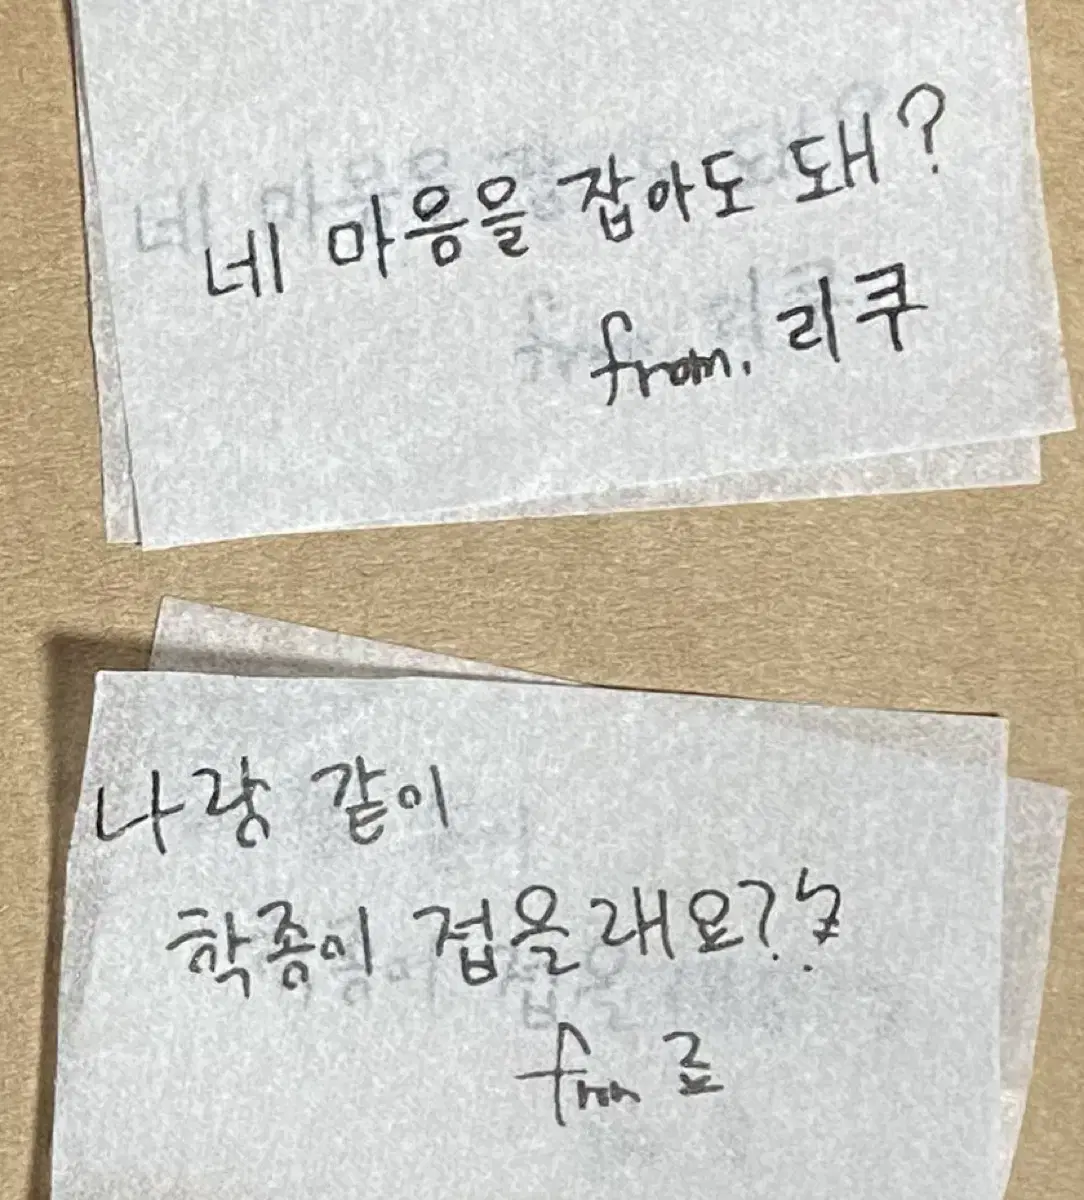 네 마음을 잡아도 돼?
from. 리쿠
나랑 같이
학종이 접을래요??
from 료